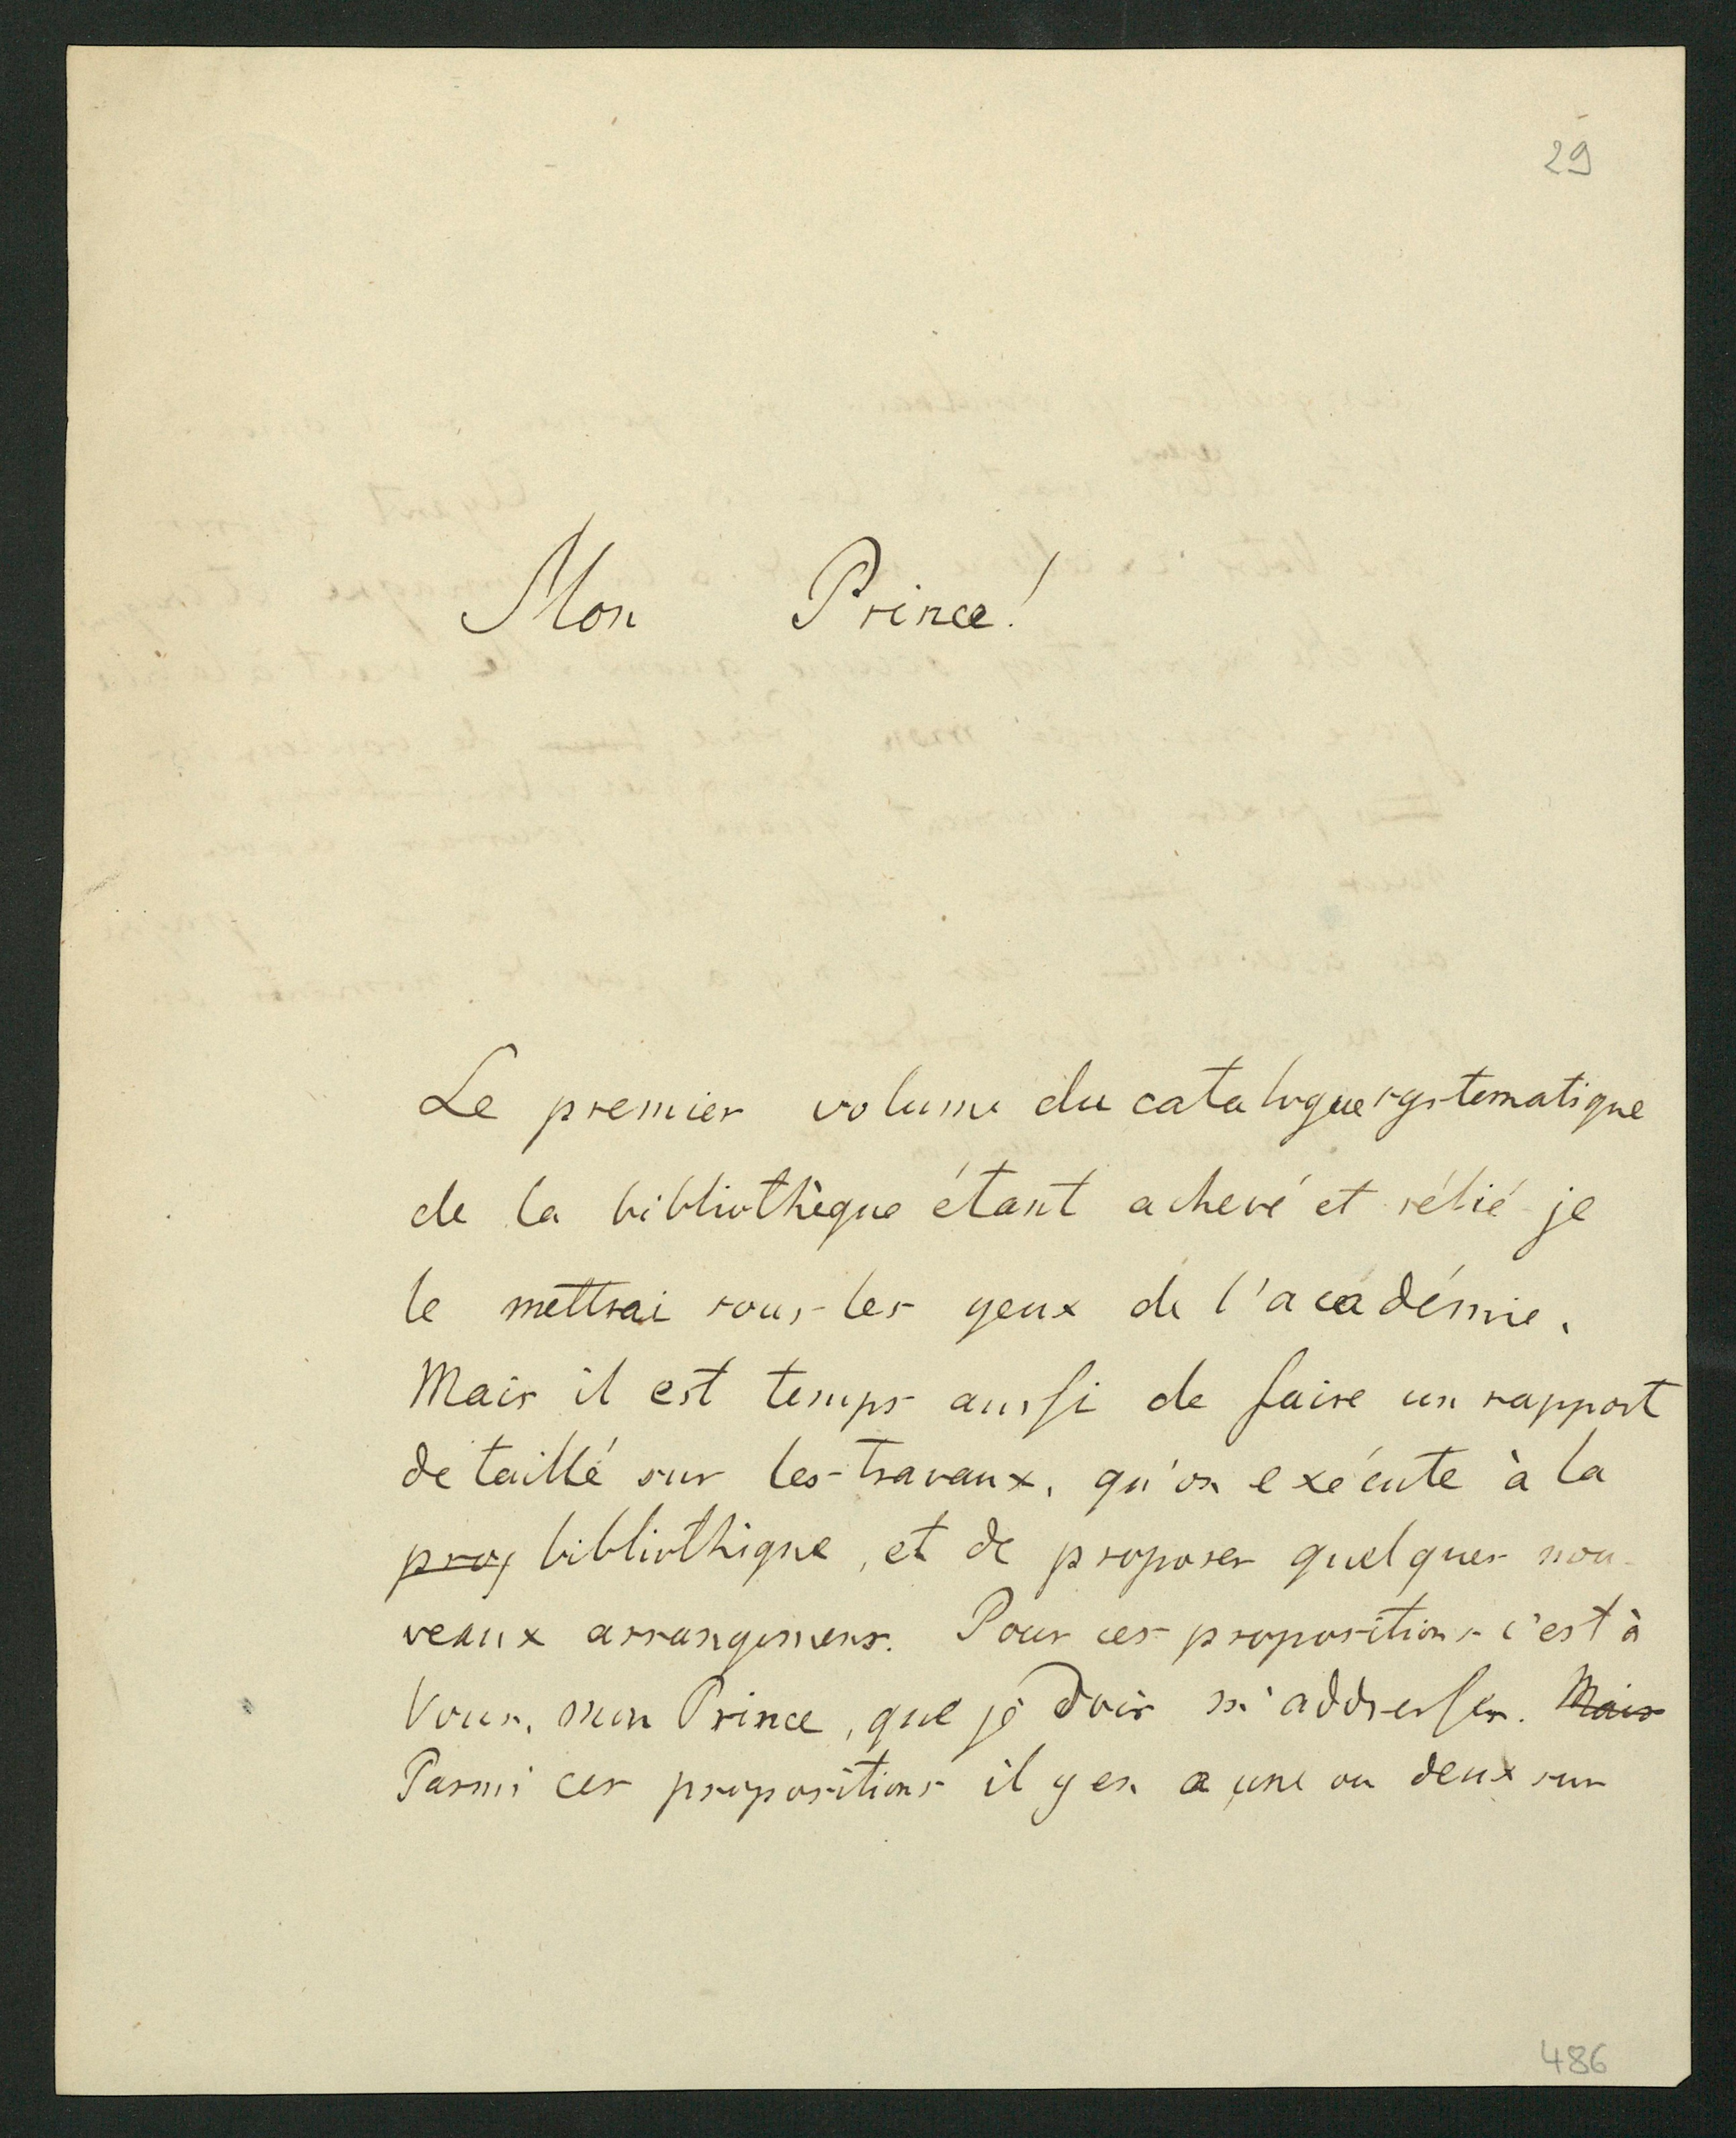 29
Mon Prince!
Le premier volume du catalogue systematique
de la bibliothèque étant achevé et rélié je
le mettrai sous les yeux de l'académie.
Mais il est temps aussi de faire un rapport
detaillé sur les travaux, qu'on exécute à la
prop bibliothèque, et de proposer quelques nou-
veaux arrangemens. Pour ces propositions c'est à
Vous, mon Prince, que je dois m'addresser. Mais
Parmi ces propositions il y en a une ou deux sur
486